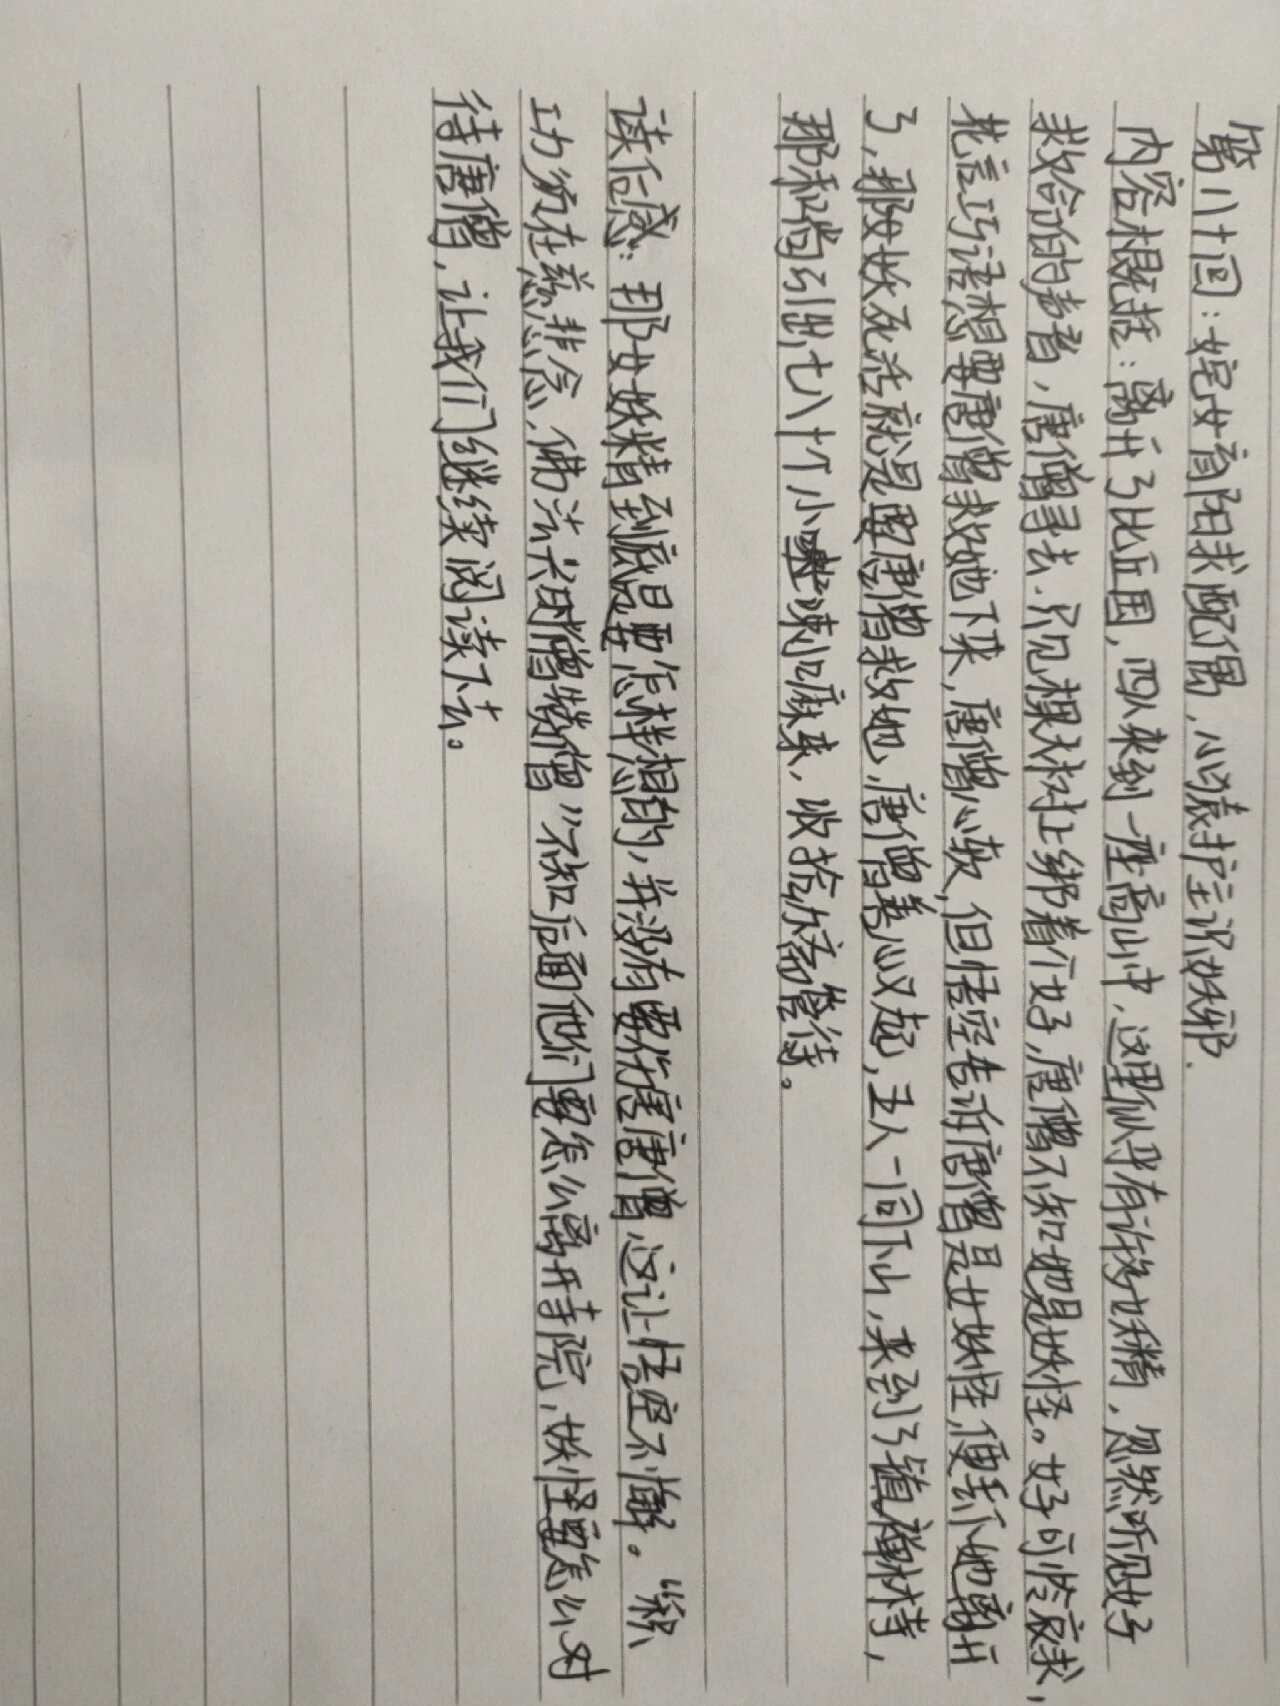 第八十回：姹女育阳求配偶，心猿护主识妖邪.
内容概括：离开了比丘国，四人来到一座高山中，这里似乎有许多妖精，忽然听见女子
求救命的声音，唐僧寻去.只见棵大树上绑着个女子，唐僧不知她是妖怪。女子可怜哀求，
花言巧语想要唐僧救她下来，唐僧心软，但悟空告诉唐僧是女妖怪，便丢下她离开
了，那女妖死活就是要唐僧救她，唐僧善心又起，五人一同下山，来到了镇海禅林寺，
那和尚引出七八十个小喇嘛来，收拾办斋管待。
读后感：那女妖精到底是要怎样想的，并没有要伤害唐僧，这让悟空不懈。“积
功须在慈悲念，佛法兴时僧赞僧”不知后面他们要怎么离开寺院，妖怪要怎么对
待唐僧，让我们继续阅读下去。